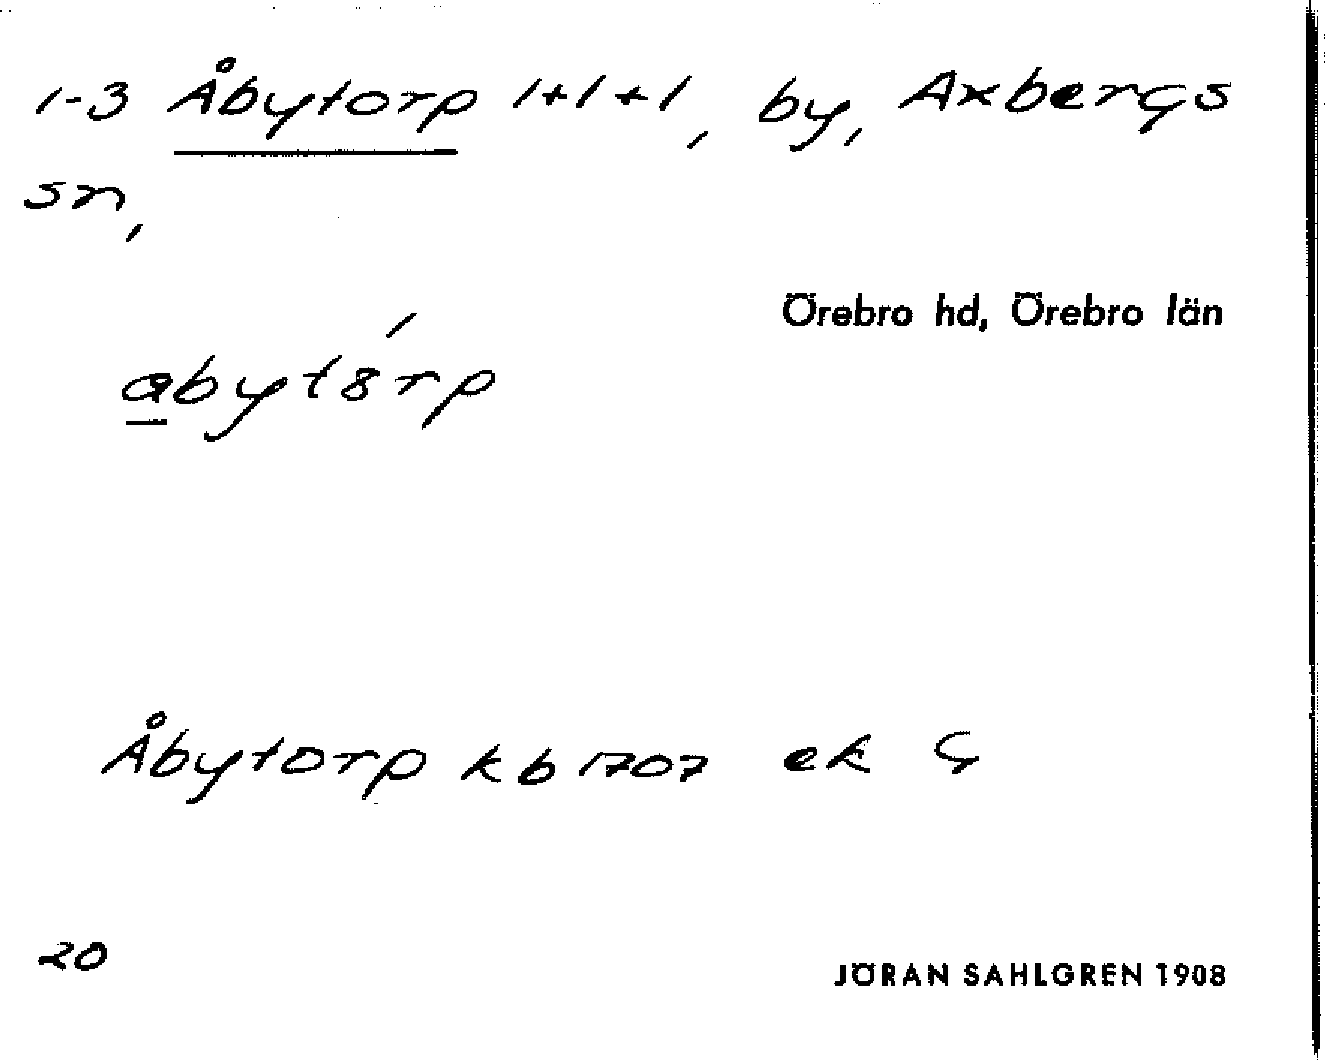 1-3 Åbytorp 1+1+1, by, Axbergs
sn,
Örebro hd, Örebro län
Åbytorp kb 1707 ek
20
JÖRAN SAHLGREN 1908